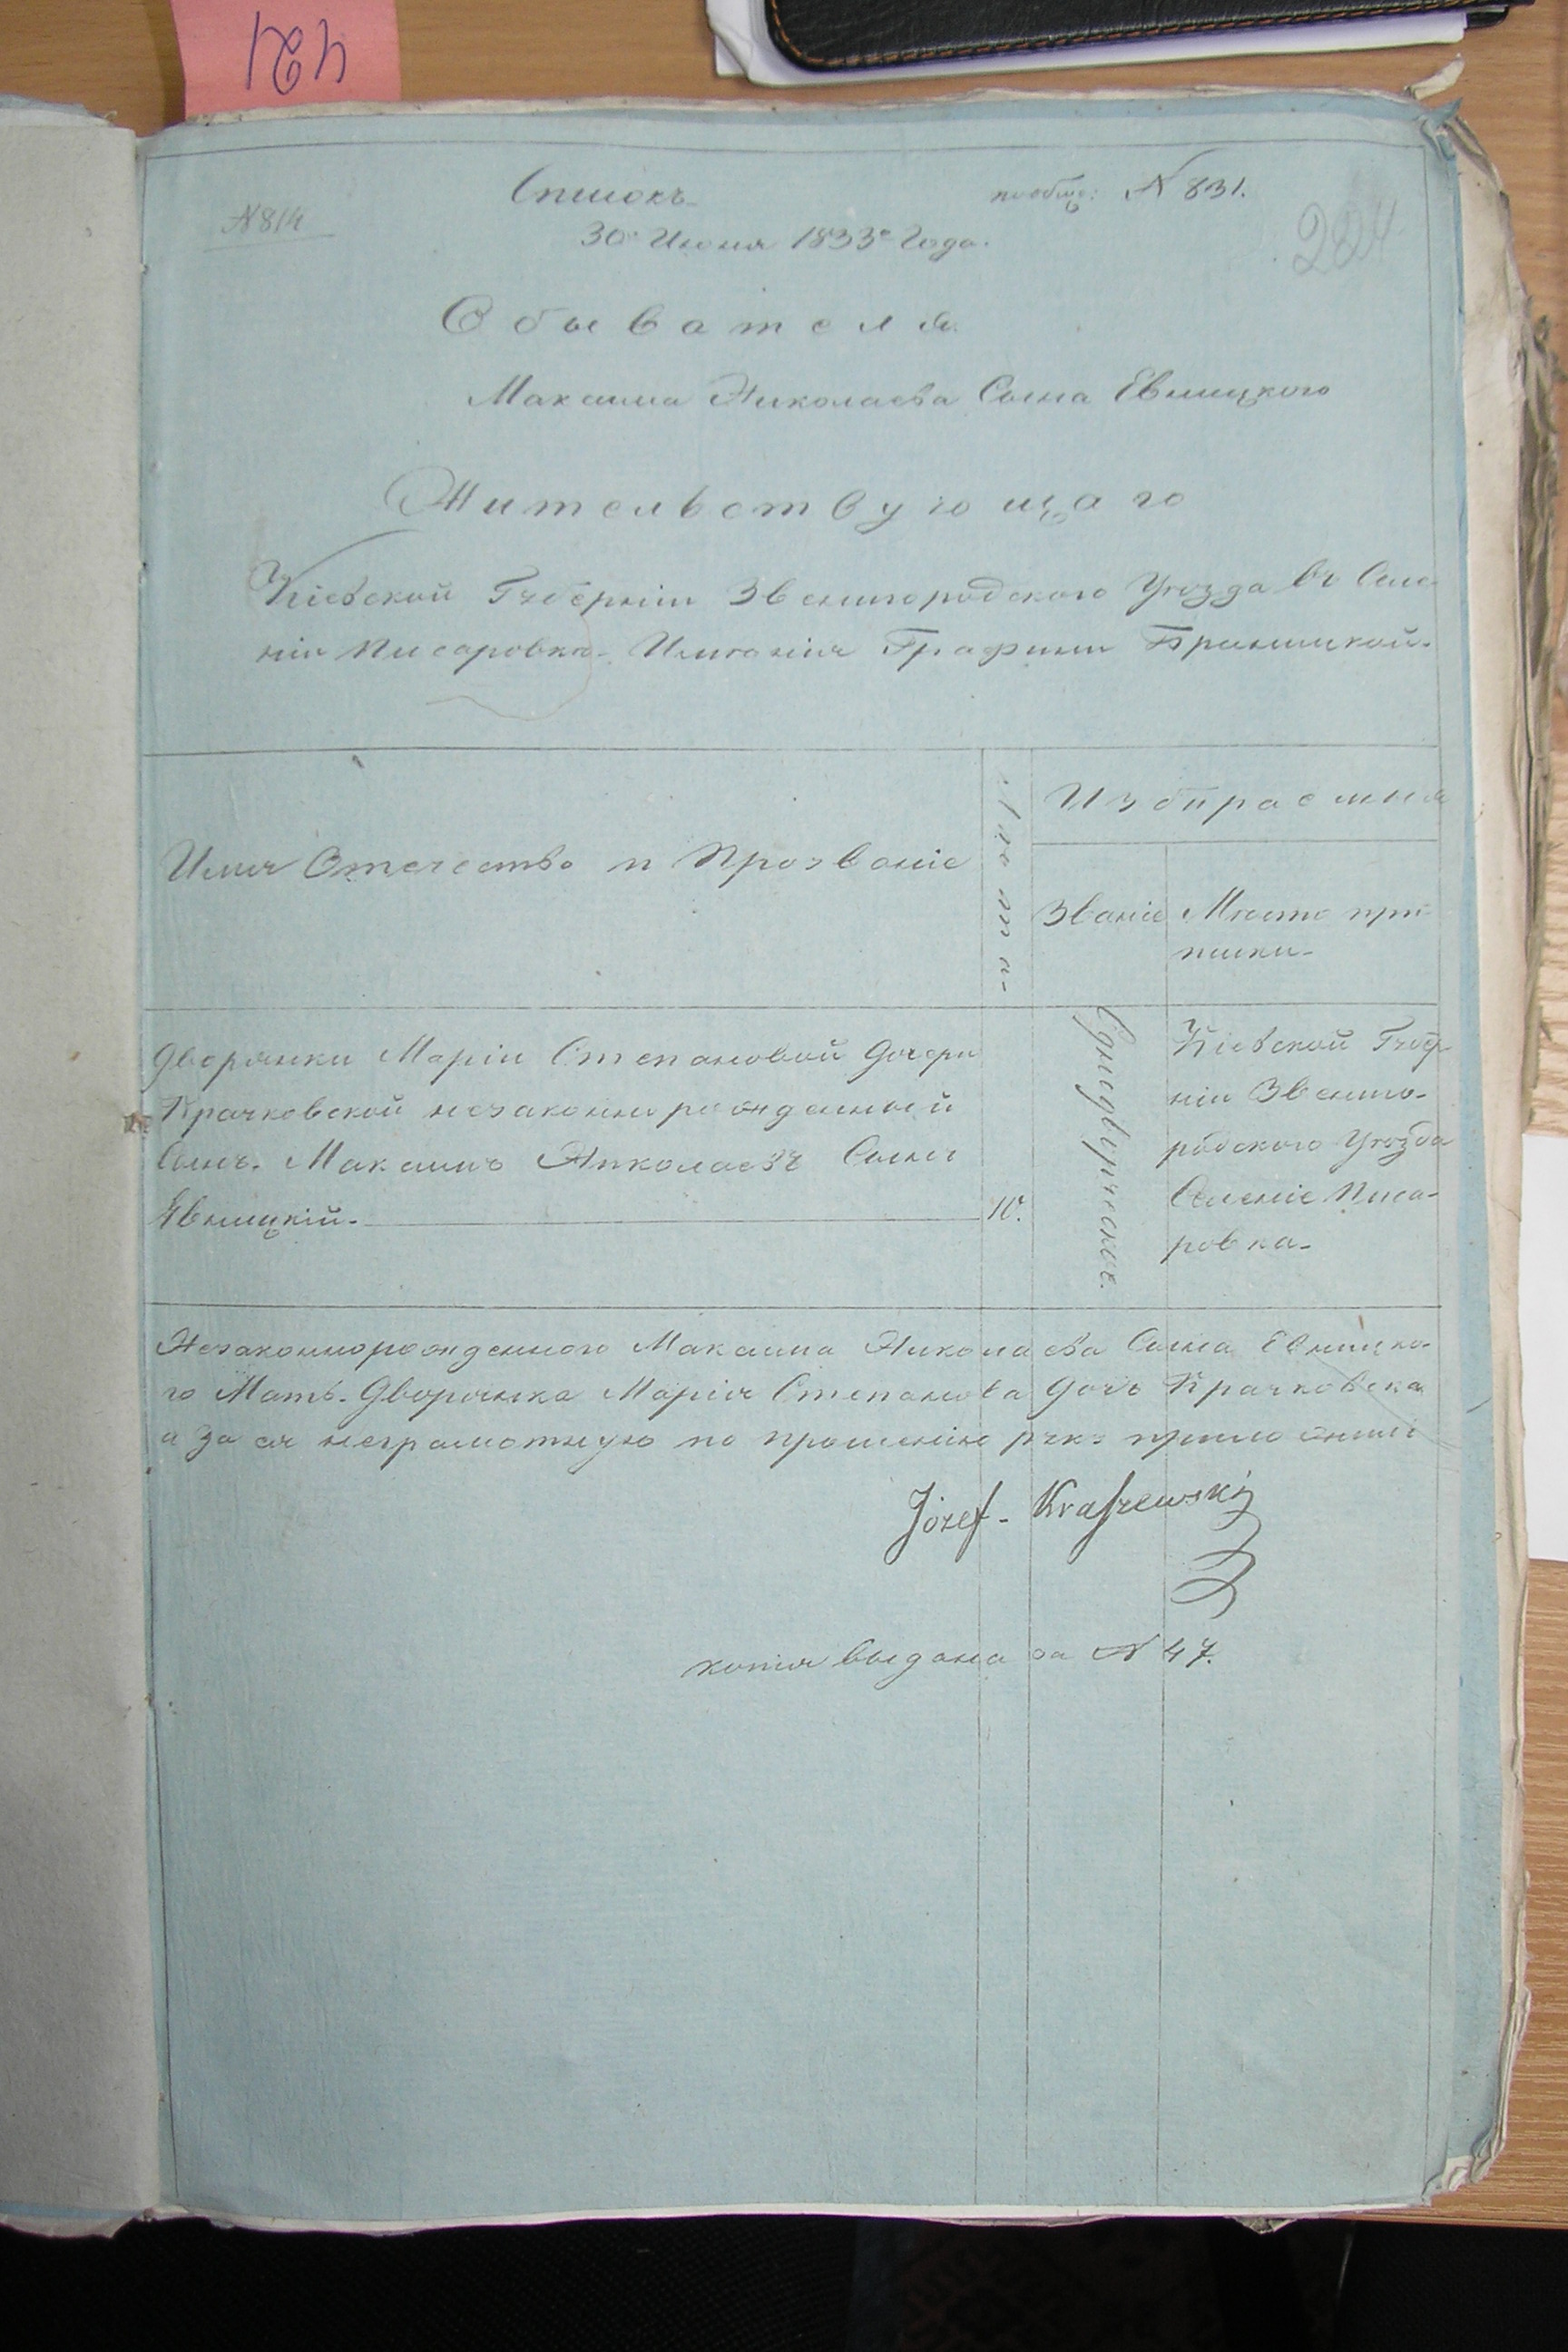 421
Списокъ
по общ: N 831.
N 814
30о Июня 1833о Года.
284
Обывателя
Максима Николаева Сына Евницкого
Жительствующаго
Кіевской Губерніи Звенигородского Уѣзда въ Селе
ніи Писаровкѣ Имѣнія Графини Браницкой.
Имя Отечество и Прозваніе
Лѣта
Избираемыя
Званіе
Мѣсто при
писки
Дворянки Маріи Степановой Дочери
Крачковской незаконнорожденный
Сынъ. Максимъ Николаевъ Сынъ
Евницкій.
10.
Однодворческое.
Кіевской Губер
ніи Звениго-
родского Уѣзда
Селеніе Писа-
ровка
Незаконнорожденного Максима Николаева Сына Евницко-
го Мать. Дворянка Марія Степанова Дочь Крачковска
а за ея неграмотную по прошенію рук: приложилъ
Józef Kraszewski
копія выдана за N 47.